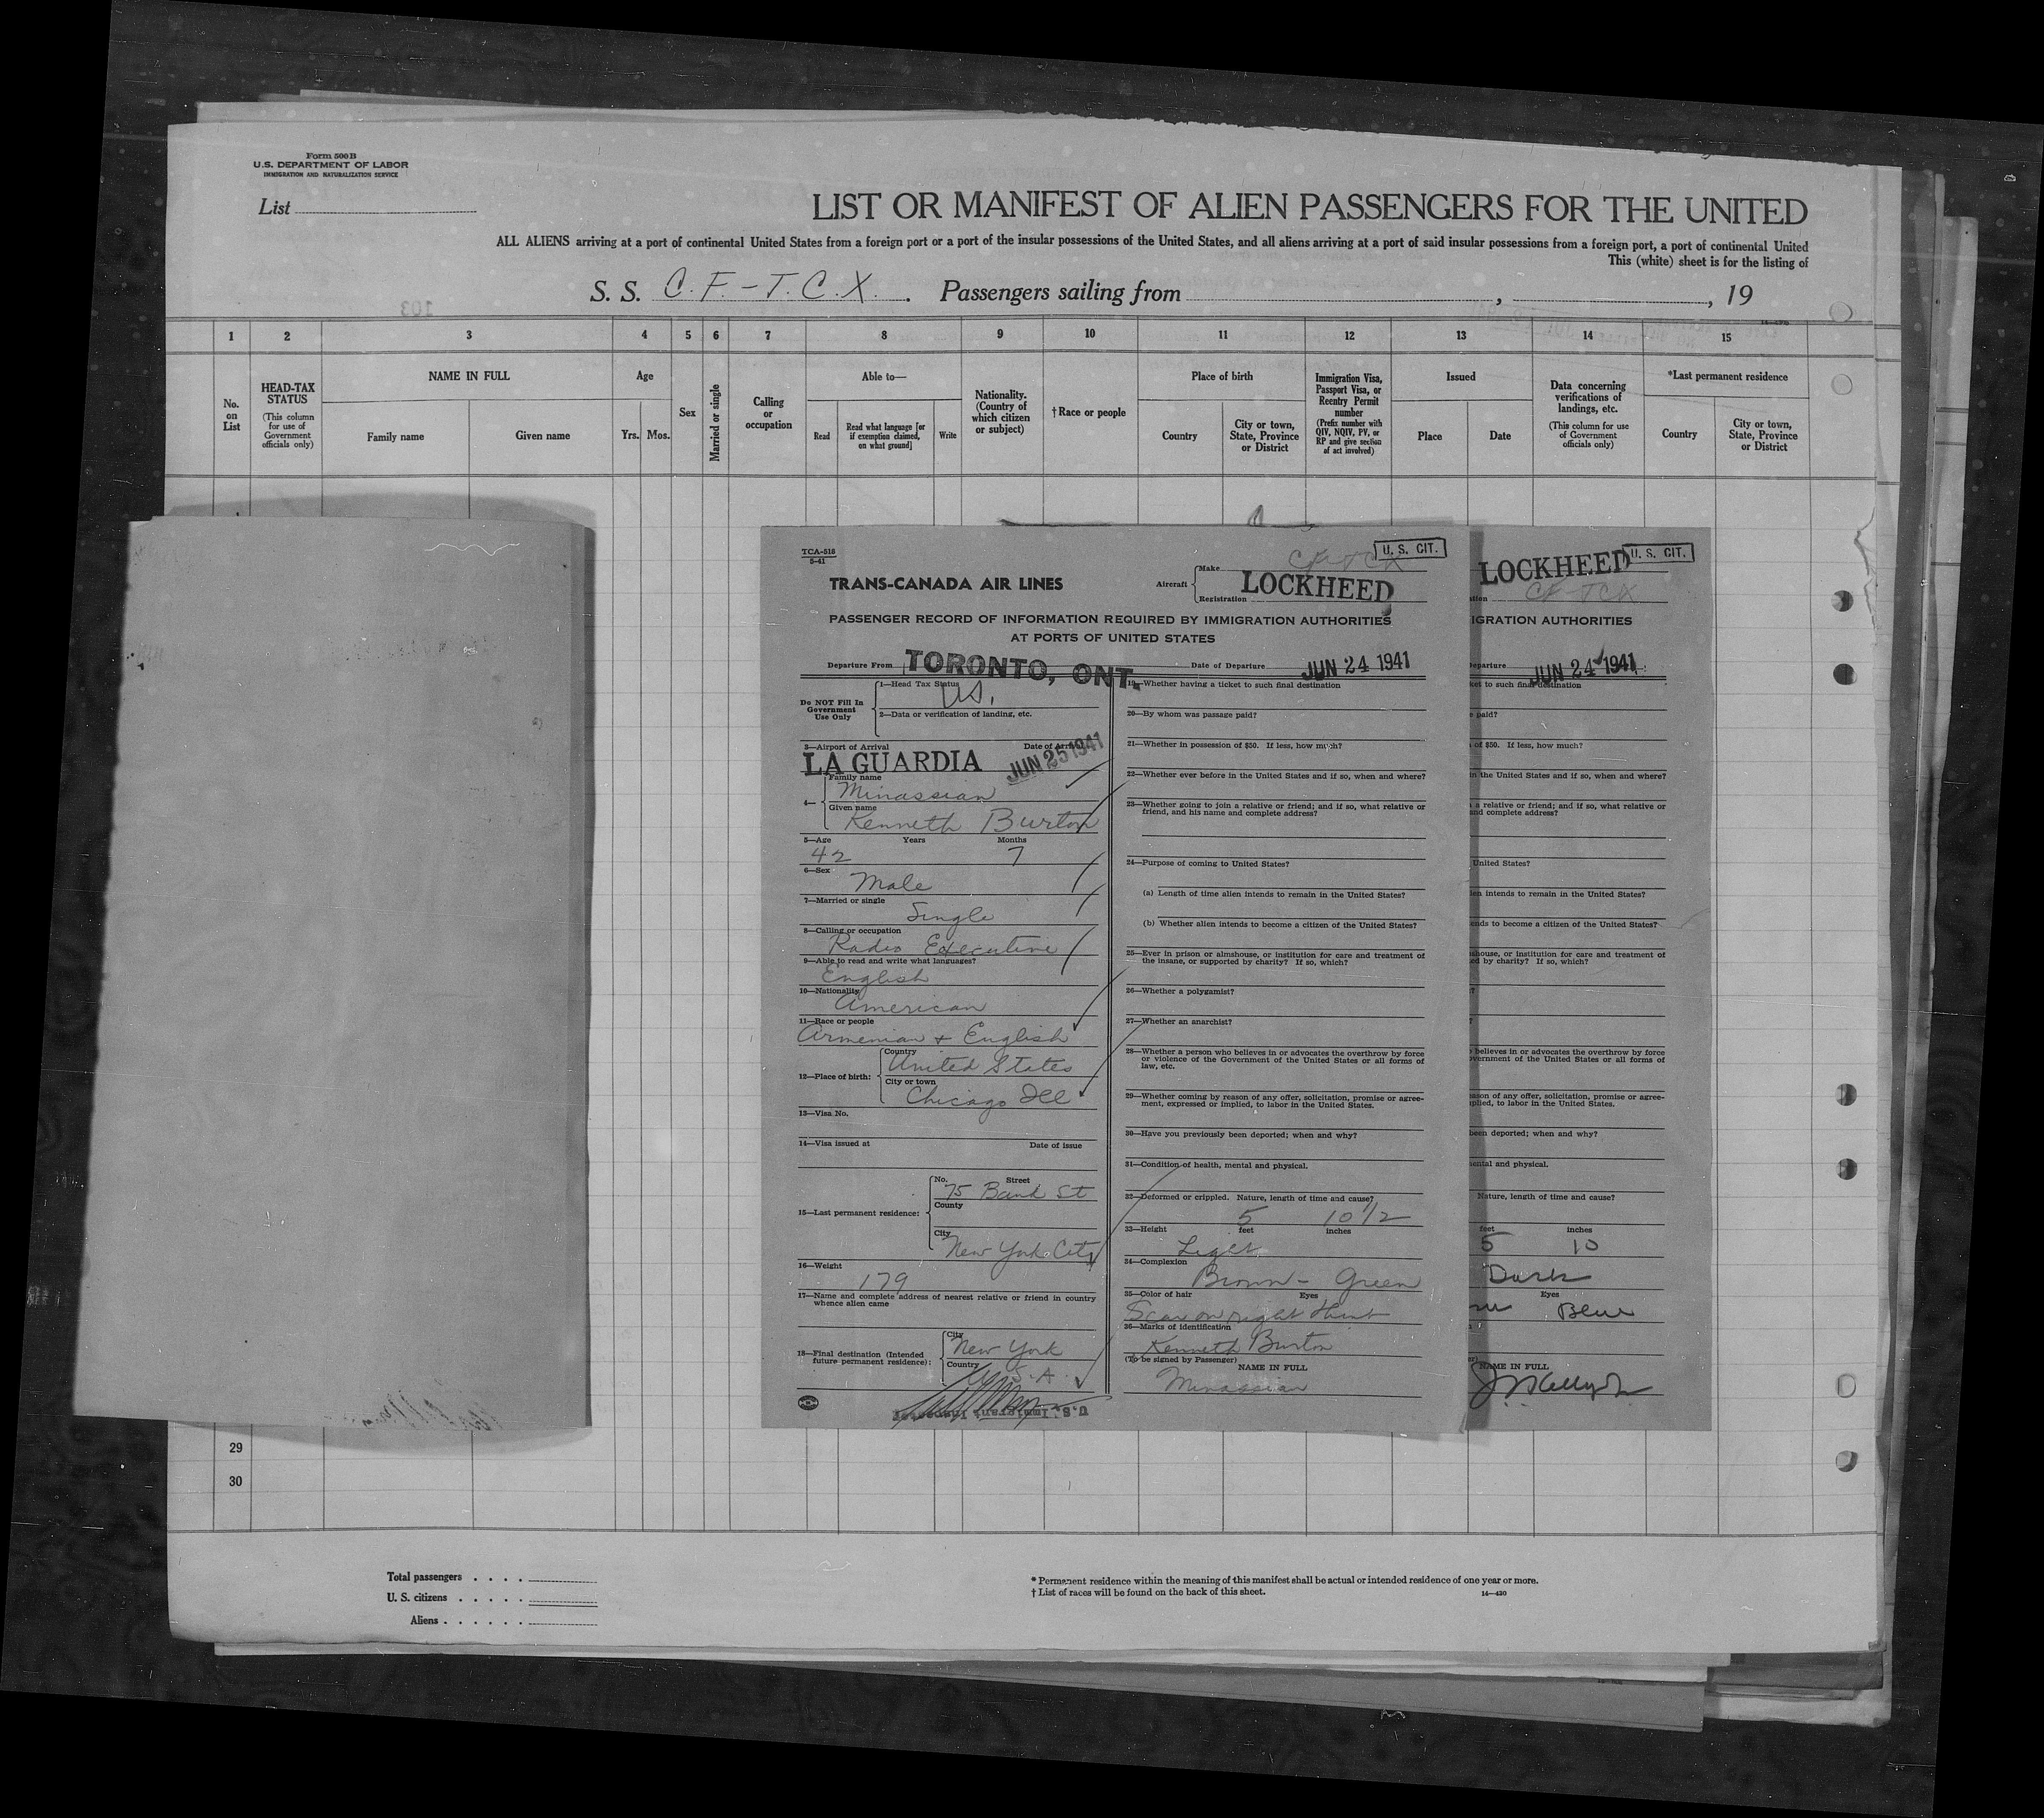 Form 500 B
U.S. DEPARTMENT OF LABOR
IMMIGRATION AND NATURALIZATION SERVICE
List
LIST OR MANIFEST OF ALIEN PASSENGERS FOR THE UNITED
ALL ALIENS arriving at a port of continental United States from a foreign port or a port of the insular possessions of the United States, and all aliens arriving at a port of said insular possessions from a foreign port, a port of continental United
This (white) sheet is for the listing of
S. S. C.F.-T.C.X. Passengers sailing from , , 19
103
1 2 3 4 5 6 7 8 9 10 11 12 13 14 15
No. on List
HEAD-TAX STATUS
(This column for use of Government officials only)
NAME IN FULL
Family name
Given name
Age
Yrs. Mos.
Sex
Married or single
Calling or occupation
Able to—
Read
Read what language [or if exemption claimed, on what ground]
Write
Nationality. (Country of which citizen or subject)
† Race or people
Place of birth
Country
City or town, State, Province or District
Immigration Visa, Passport Visa, or Reentry Permit number
(Prefix number with QIV, NQIV, PV, or RP and give section of act involved)
Issued
Place
Date
Data concerning verifications of landings, etc.
(This column for use of Government officials only)
*Last permanent residence
Country
City or town, State, Province or District
TCA-518
5-41
U. S. CIT.
TRANS-CANADA AIR LINES
Aircraft
Make
CF TCX
Registration
LOCKHEED
PASSENGER RECORD OF INFORMATION REQUIRED BY IMMIGRATION AUTHORITIES
AT PORTS OF UNITED STATES
Departure From TORONTO, ONT.
Date of Departure JUN 24 1941
Do NOT Fill In
Government
Use Only
1—Head Tax Status
U.S.
2—Data or verification of landing, etc.
3—Airport of Arrival
Date of Arrival
LA GUARDIA
JUN 25 1941
4—
Family name
Minassian
Given name
Kenneth Burton
5—Age Years Months
42 7
6—Sex
Male
7—Married or single
Single
8—Calling or occupation
Radio Executive
9—Able to read and write what languages?
English
10—Nationality
American
11—Race or people
Armenian + English
12—Place of birth:
Country
United States
City or town
Chicago Ill
13—Visa No.
14—Visa issued at Date of issue
15—Last permanent residence:
No. Street
75 Bank St
County
City
New York City
16—Weight
179
17—Name and complete address of nearest relative or friend in country
whence alien came
18—Final destination (Intended
future permanent residence):
City
New York
Country
U.S.A.
U.S. Immigrant Inspector
19—Whether having a ticket to such final destination
20—By whom was passage paid?
21—Whether in possession of $50. If less, how much?
22—Whether ever before in the United States and if so, when and where?
23—Whether going to join a relative or friend; and if so, what relative or
friend, and his name and complete address?
24—Purpose of coming to United States?
(a) Length of time alien intends to remain in the United States?
(b) Whether alien intends to become a citizen of the United States?
25—Ever in prison or almshouse, or institution for care and treatment of
the insane, or supported by charity? If so, which?
26—Whether a polygamist?
27—Whether an anarchist?
28—Whether a person who believes in or advocates the overthrow by force
or violence of the Government of the United States or all forms of
law, etc.
29—Whether coming by reason of any offer, solicitation, promise or agree-
ment, expressed or implied, to labor in the United States.
30—Have you previously been deported; when and why?
31—Condition of health, mental and physical.
32—Deformed or crippled. Nature, length of time and cause?
5 10 1/2
33—Height feet inches
Light
34—Complexion
Brown - Green
35—Color of hair Eyes
Scar on right
36—Marks of identification
Kenneth Burton
(To be signed by Passenger)
NAME IN FULL
Minassian
U. S. CIT.
LOCKHEED
CF TCX
IGRATION AUTHORITIES
eparture JUN 24 1941
ket to such final destination
e paid?
of $50. If less, how much?
in the United States and if so, when and where?
a relative or friend; and if so, what relative or
and complete address?
United States?
ien intends to remain in the United States?
ends to become a citizen of the United States?
shouse, or institution for care and treatment of
ed by charity? If so, which?
believes in or advocates the overthrow by force
overnment of the United States or all forms of
eason of any offer, solicitation, promise or agree-
plied, to labor in the United States.
been deported; when and why?
ental and physical.
Nature, length of time and cause?
feet inches
5 10
Dark
Eyes
Blue
NAME IN FULL
29
30
Total passengers
U. S. citizens
Aliens
* Permanent residence within the meaning of this manifest shall be actual or intended residence of one year or more.
† List of races will be found on the back of this sheet.
14—430